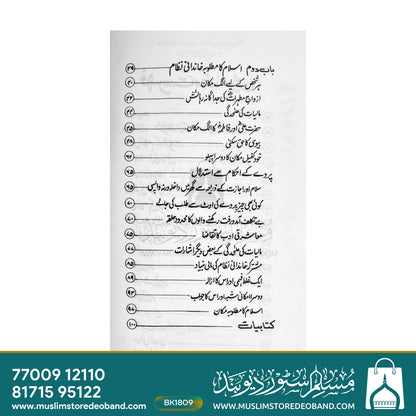 باب دوم اسلام کا مطلوبہ خاندانی نظام ۳۹
ہر شخص کے لیے الگ مکان ۴۰
ازواج مطہرات کی جداگانہ رہائش ۴۲
مالیات کی علیحدگی ۴۲
حضرت علی اور فاطمہ کا الگ مکان ۴۵
بیوی کا حق سکنیٰ ۴۸
خود کفیل مکان کا دوسرا پہلو ۶۲
پردے کے احکام سے استدلال ۶۵
سلام اور اجازت کے ذریعہ گھر میں داخلہ ورنہ واپسی ۶۵
کوئی بھی چیز پردے کی اوٹ سے طلب کی جائے ۷۰
بے تکلف آمد و رفت رکھنے والوں کا محدود حلقہ ۷۰
معاشرتی ادب کا تقاضا ۷۵
مالیات کی علیحدگی کے بعض دیگر اشارات ۷۷
مشترکہ خاندانی نظام کی مالی بنیاد ۸۵
ایک غلط فہمی اور اس کا ازالہ ۸۷
دوسرا امکانی شبہ اور اس کا جواب ۹۳
اسلام کا مطلوبہ مکان ۹۷
کتابیات ۱۰۰
77009 12110
81715 95122
www.muslimstoredeoband.com
BK1809
مسلم سٹور دیوبند
WWW.MUSLIMSTOREDEOBAND.COM